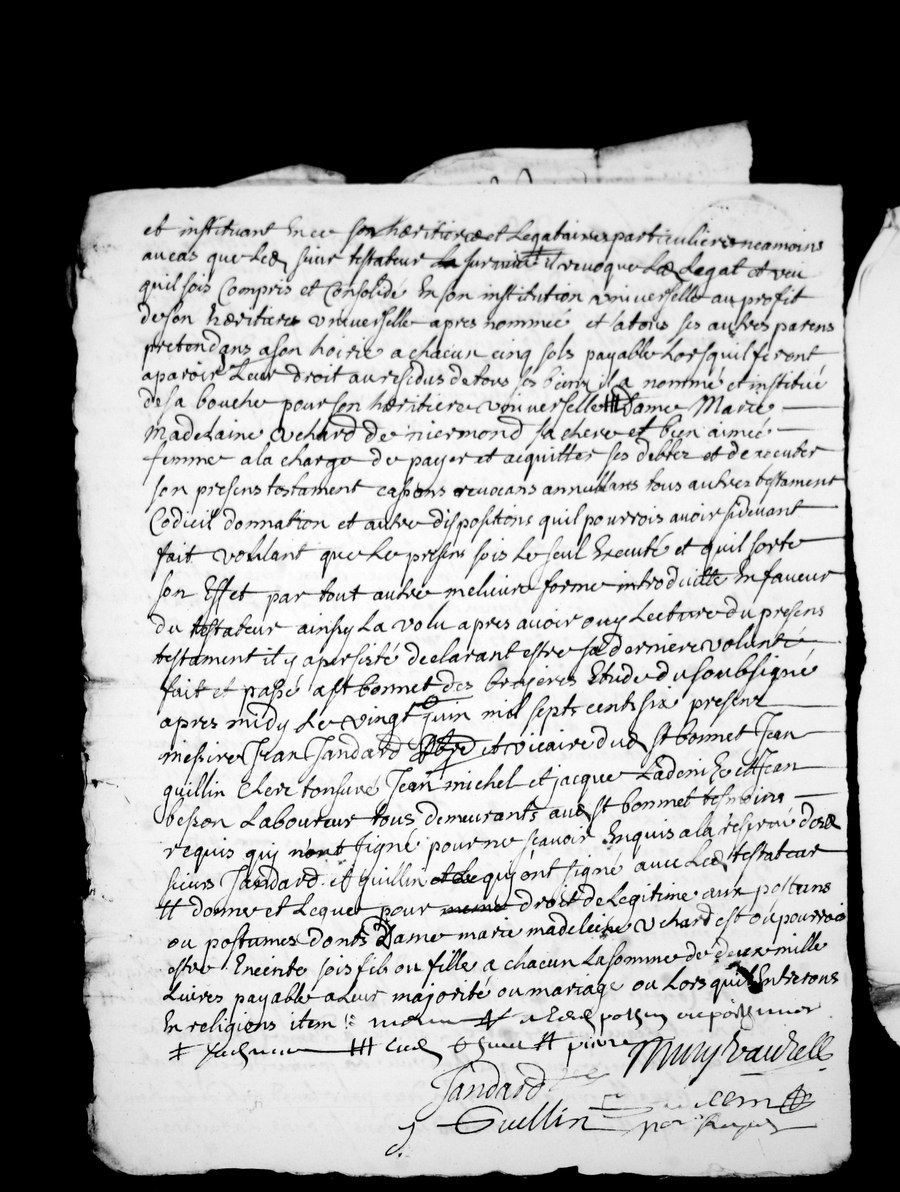 et instituant en ce son hæritiere et legataires particulieres neamoins
au cas que led sieur testateur la survive il revoque led legat et veu
quil sois compris et consolidé en son institution universelle au profit
de son hæritiere universelle apres nommée et a tous ses autres parens
pretendans a son hoirie a chacun cinq sols payable lors quil feront
aparoir leur droit au residus de tous ses biens il a nommé et institué
de sa bouche pour son hæritiere universelle dame Marie
Madelaine de niermond sa chere et bien aimée
femme a la charge de payer et acquitter ses debtez et dexecuter
son presens testament cassans revocans annullans tous autres testament
Codicil donnation et autre dispositions quil pourrois avoir sidevant
fait voulant que le presens sois le seul executé et quil sorte
son Effet par tout autre meliure forme introduitte en faveur
du testateur ainsy la volu apres avoir ouy lecture du presens
testament il y a persisté declarant estre sa derniere volunté
fait et passé a st bonnet des bruieres Etude du soubsigné
apres midy le vingt juin mil sept cents six presenz
messire Jean Jandard et vicaire dud st bonnet Jean
guillin Clerc tonsuré Jean michel et jacque et Jean
besson laboureur tous demeurants aud st bonnet tesmoins
requis quy nont signé pour ne scavoir enquis a la reserve desd
sieurs Jandard et guillin quy ont signé avec led testateur
donne et legue pour droit de legitime aux postums
ou postumes donts Dame marie madeleine est ou pourroit
estre Eneinte sois fils ou fille a chacun la somme de deux mille
Livres payable a leur majorité ou mariage ou lors quil entrerons
En religions item
Jandard
J Guillin